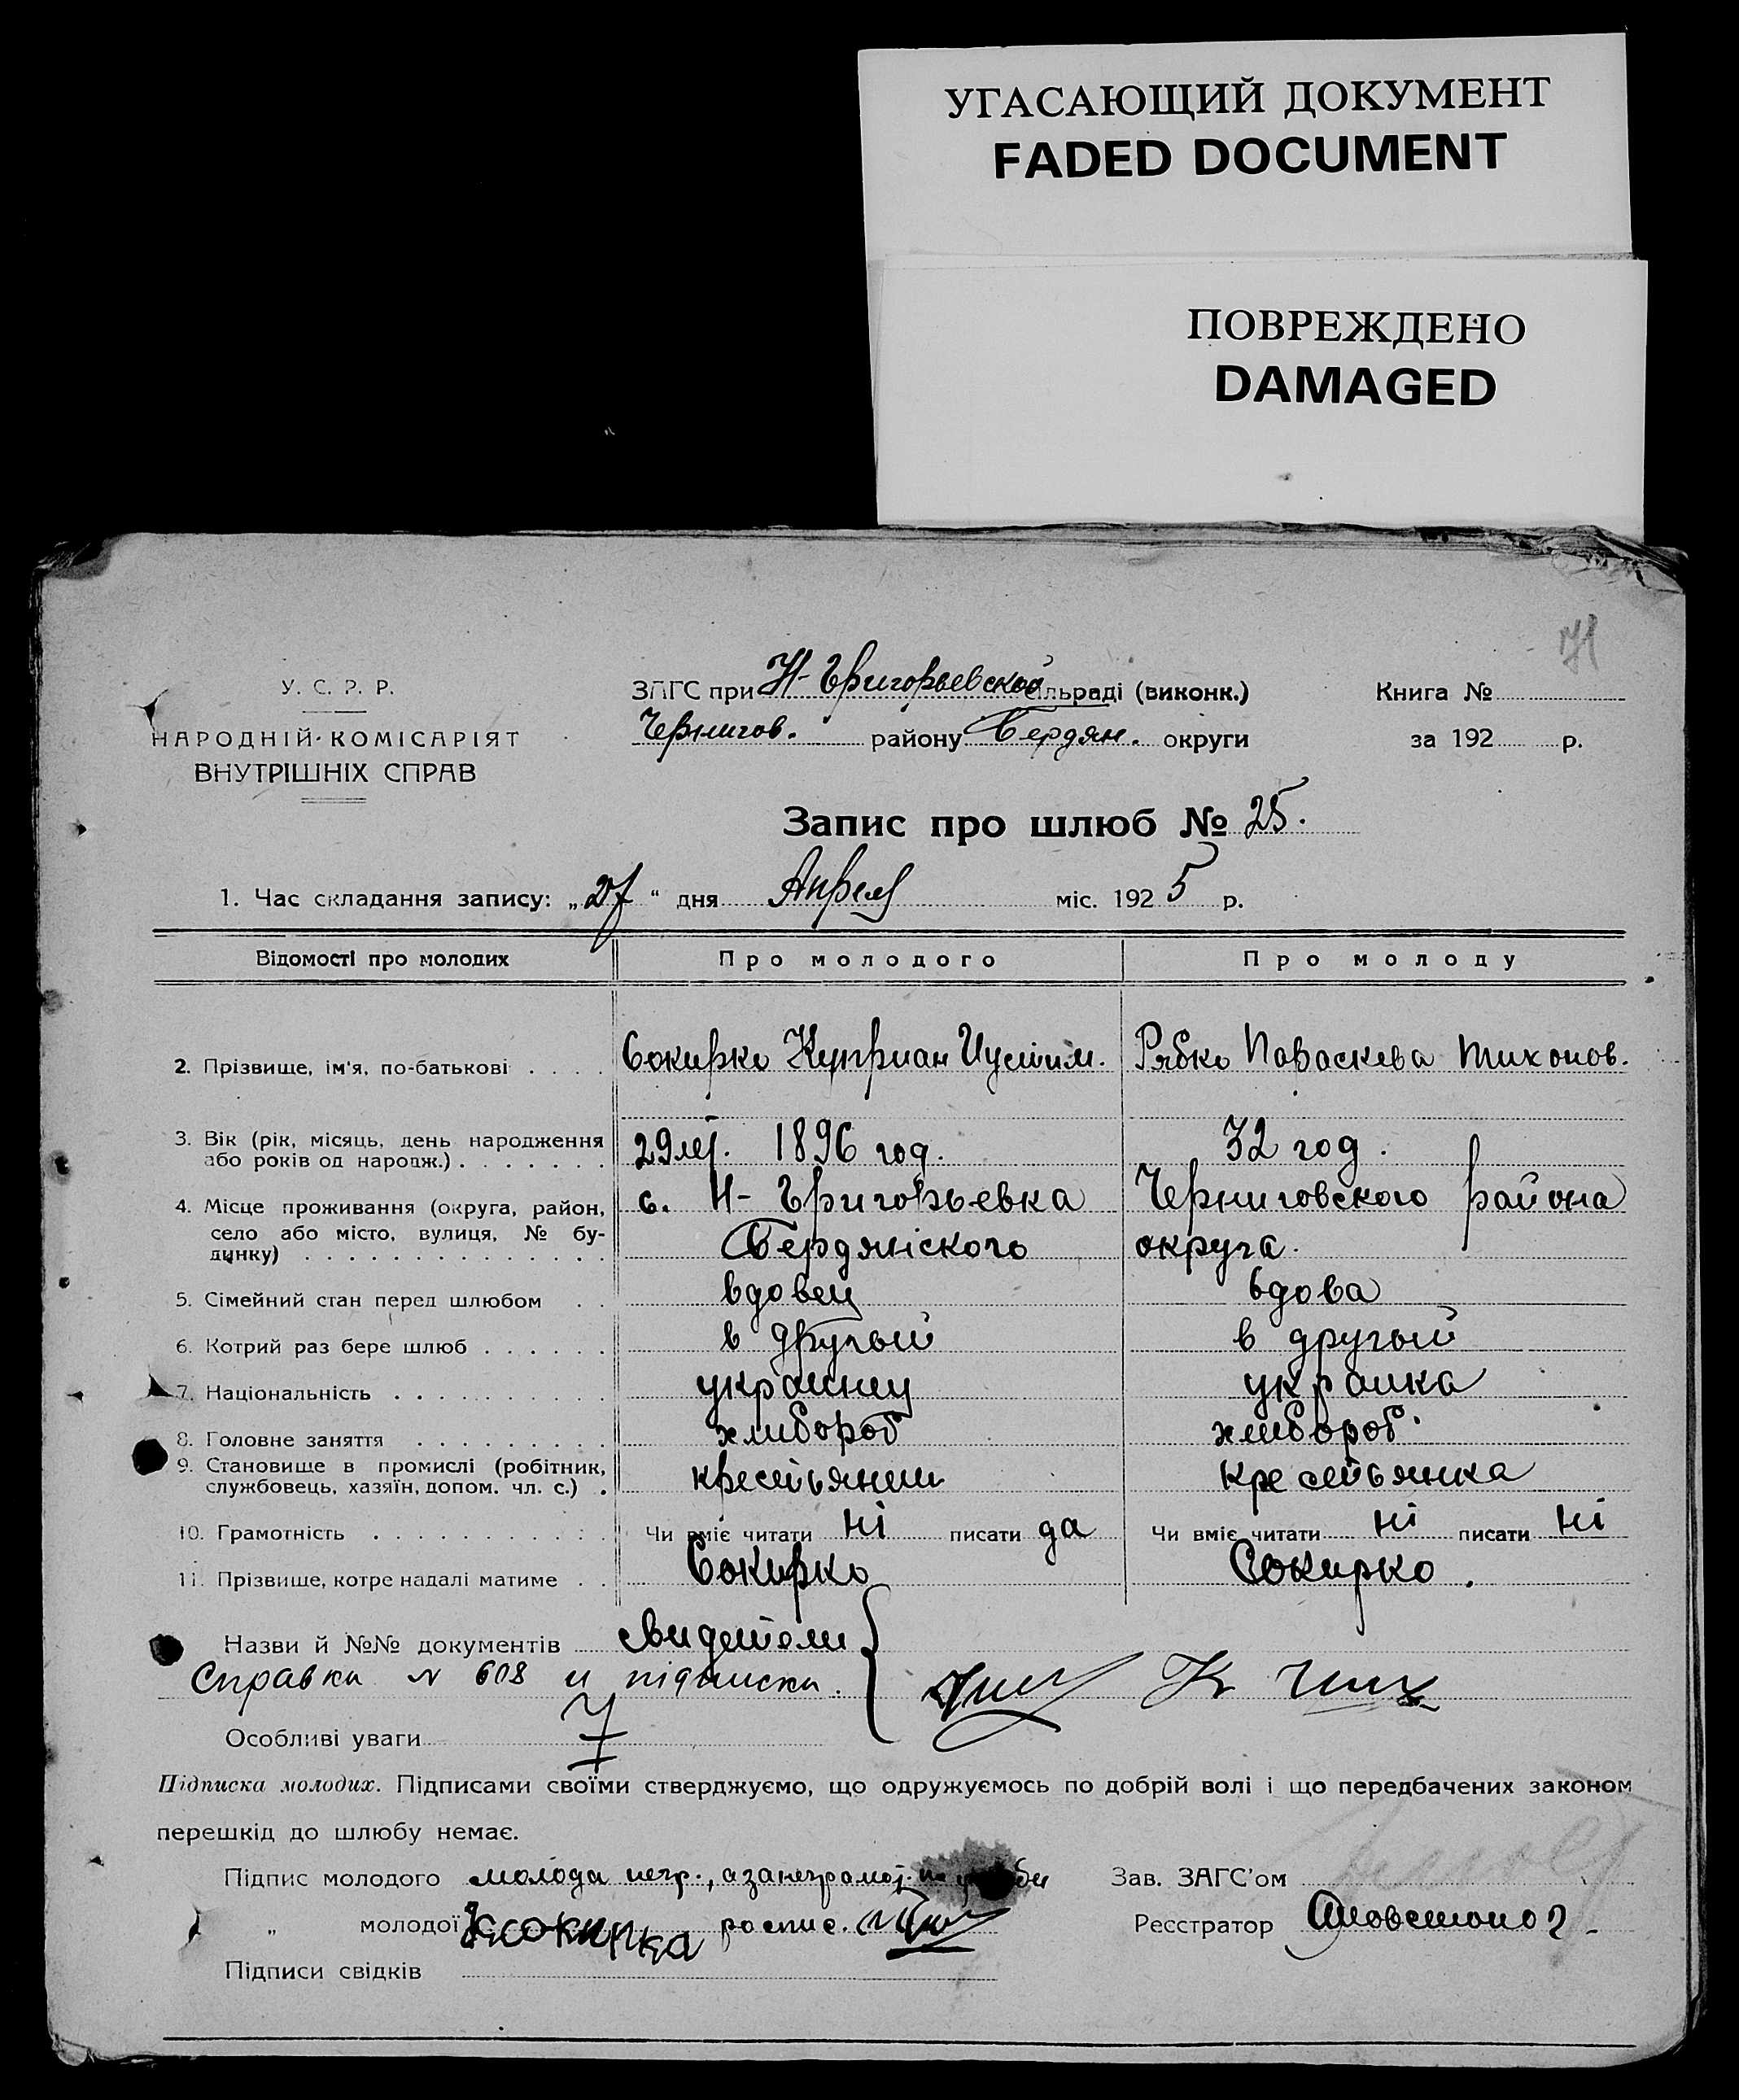 УГАСАЮЩИЙ ДОКУМЕНТ
FADED DOCUMENT
ПОВРЕЖДЕНО
DAMAGED
71
У. С. Р. Р.
НАРОДНІЙ КОМІСАРІЯТ
ВНУТРІШНІХ СПРАВ
ЗАГС при Н-Григорьевской сільраді (виконк.)
Чернигов. району Бердян. округи
Книга №
за 192 р.
Запис про шлюб № 25.
1. Час складання запису: „27“ дня Апреля міс. 1925 р.
Відомості про молодих Про молодого Про молоду
2. Прізвище, ім'я, по-батькові . . . . Сокирко Куприан Иустим. Рябко Параскева Тихонов.
3. Вік (рік, місяць, день народження
або років од народж.) . . . . . . . 29 лет. 1896 год. 32 год.
4. Місце проживання (округа, район, с. Н-Григорьевка Черниговского района
село або місто, вулиця, № бу-
динку) . . . . . . . . . . . . . Бердянского округа.
5. Сімейний стан перед шлюбом . . вдовец вдова
6. Котрий раз бере шлюб . . . . . . в другый в другый
7. Національність . . . . . . . . . украинец украинка
8. Головне заняття . . . . . . . . . хлибороб хлибороб.
9. Становище в промислі (робітник,
службовець, хазяїн, допом. чл. с.) . крестьянин крестьянка
10. Грамотність . . . . . . . . . . Чи вміє читати ні писати да Чи вміє читати ні писати ні
11. Прізвище, котре надалі матиме . . Сокирко Сокирко.
Назви й №№ документів свидетели
Справки № 608 и підписки.
Особливі уваги
Підписка молодих. Підписами своїми стверджуємо, що одружуємось по добрій волі і що передбачених законом
перешкід до шлюбу немає.
Підпис молодого молода негр., а за неграмот.
„ молодої роспис.
Підписи свідків
Зав. ЗАГС'ом
Реєстратор